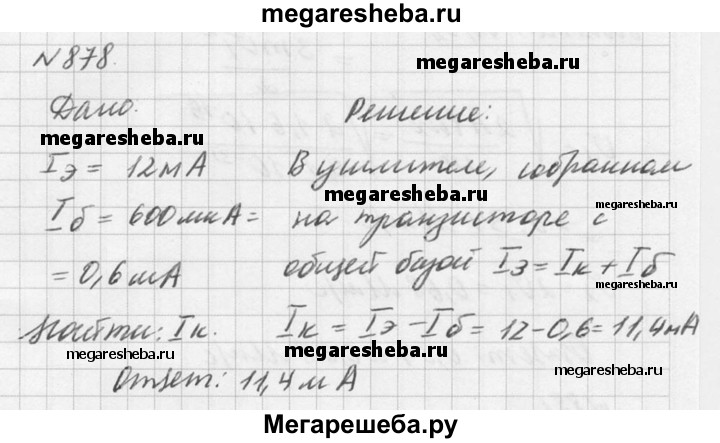 megaresheba.ru
N 878.
megaresheba.ru
Дано. Решение:
megaresheba.ru
megaresheba.ru
Iэ = 12мА В усилителе, собранном
megaresheba.ru
megaresheba.ru
Iб = 600мкА = на транзисторе с
= 0,6мА общей базой Iэ = Iк + Iб
megaresheba.ru
Найти: Iк. Iк = Iэ - Iб = 12 - 0,6 = 11,4мА
megaresheba.ru
megaresheba.ru
Ответ: 11,4 мА
Мегарешеба.ру